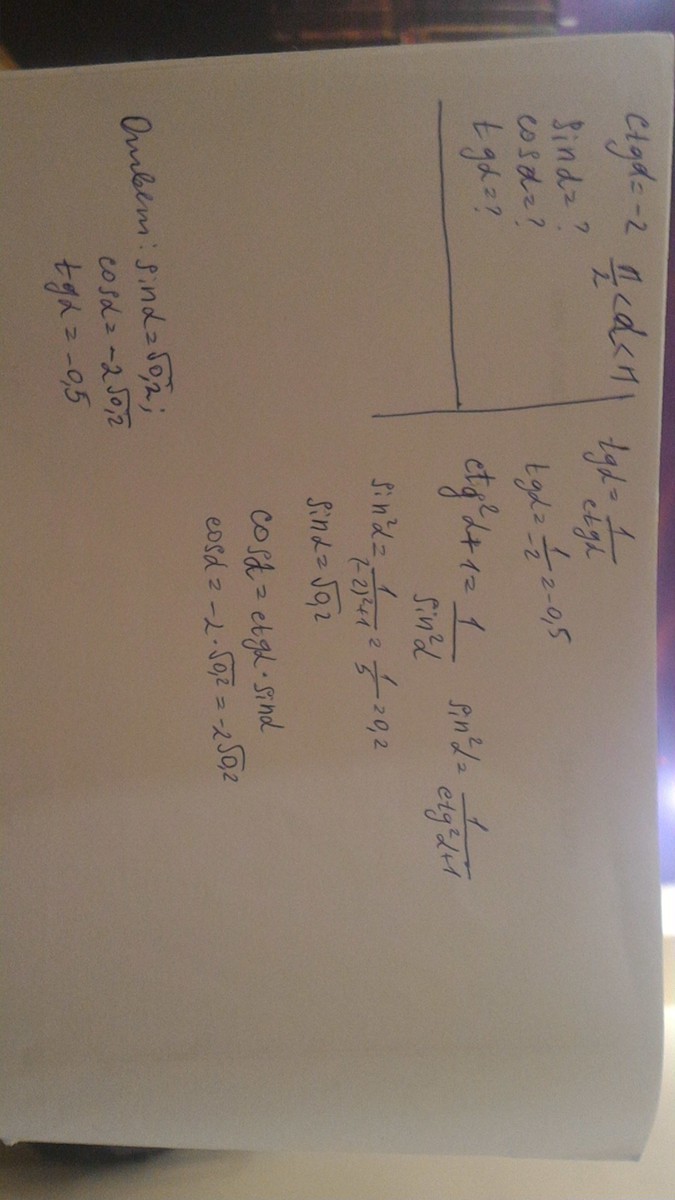 ctgα = -2 π/2 < α < π
sinα = ?
cosα = ?
tgα = ?
tgα = 1/ctgα
tgα = 1/-2 = -0,5
ctg²α + 1 = 1/sin²α sin²α = 1/ctg²α+1
sin²α = 1/(-2)²+1 = 1/5 = 0,2
sinα = √0,2
cosα = ctgα · sinα
cosα = -2 · √0,2 = -2√0,2
Ответ: sinα = √0,2;
cosα = -2√0,2
tgα = -0,5